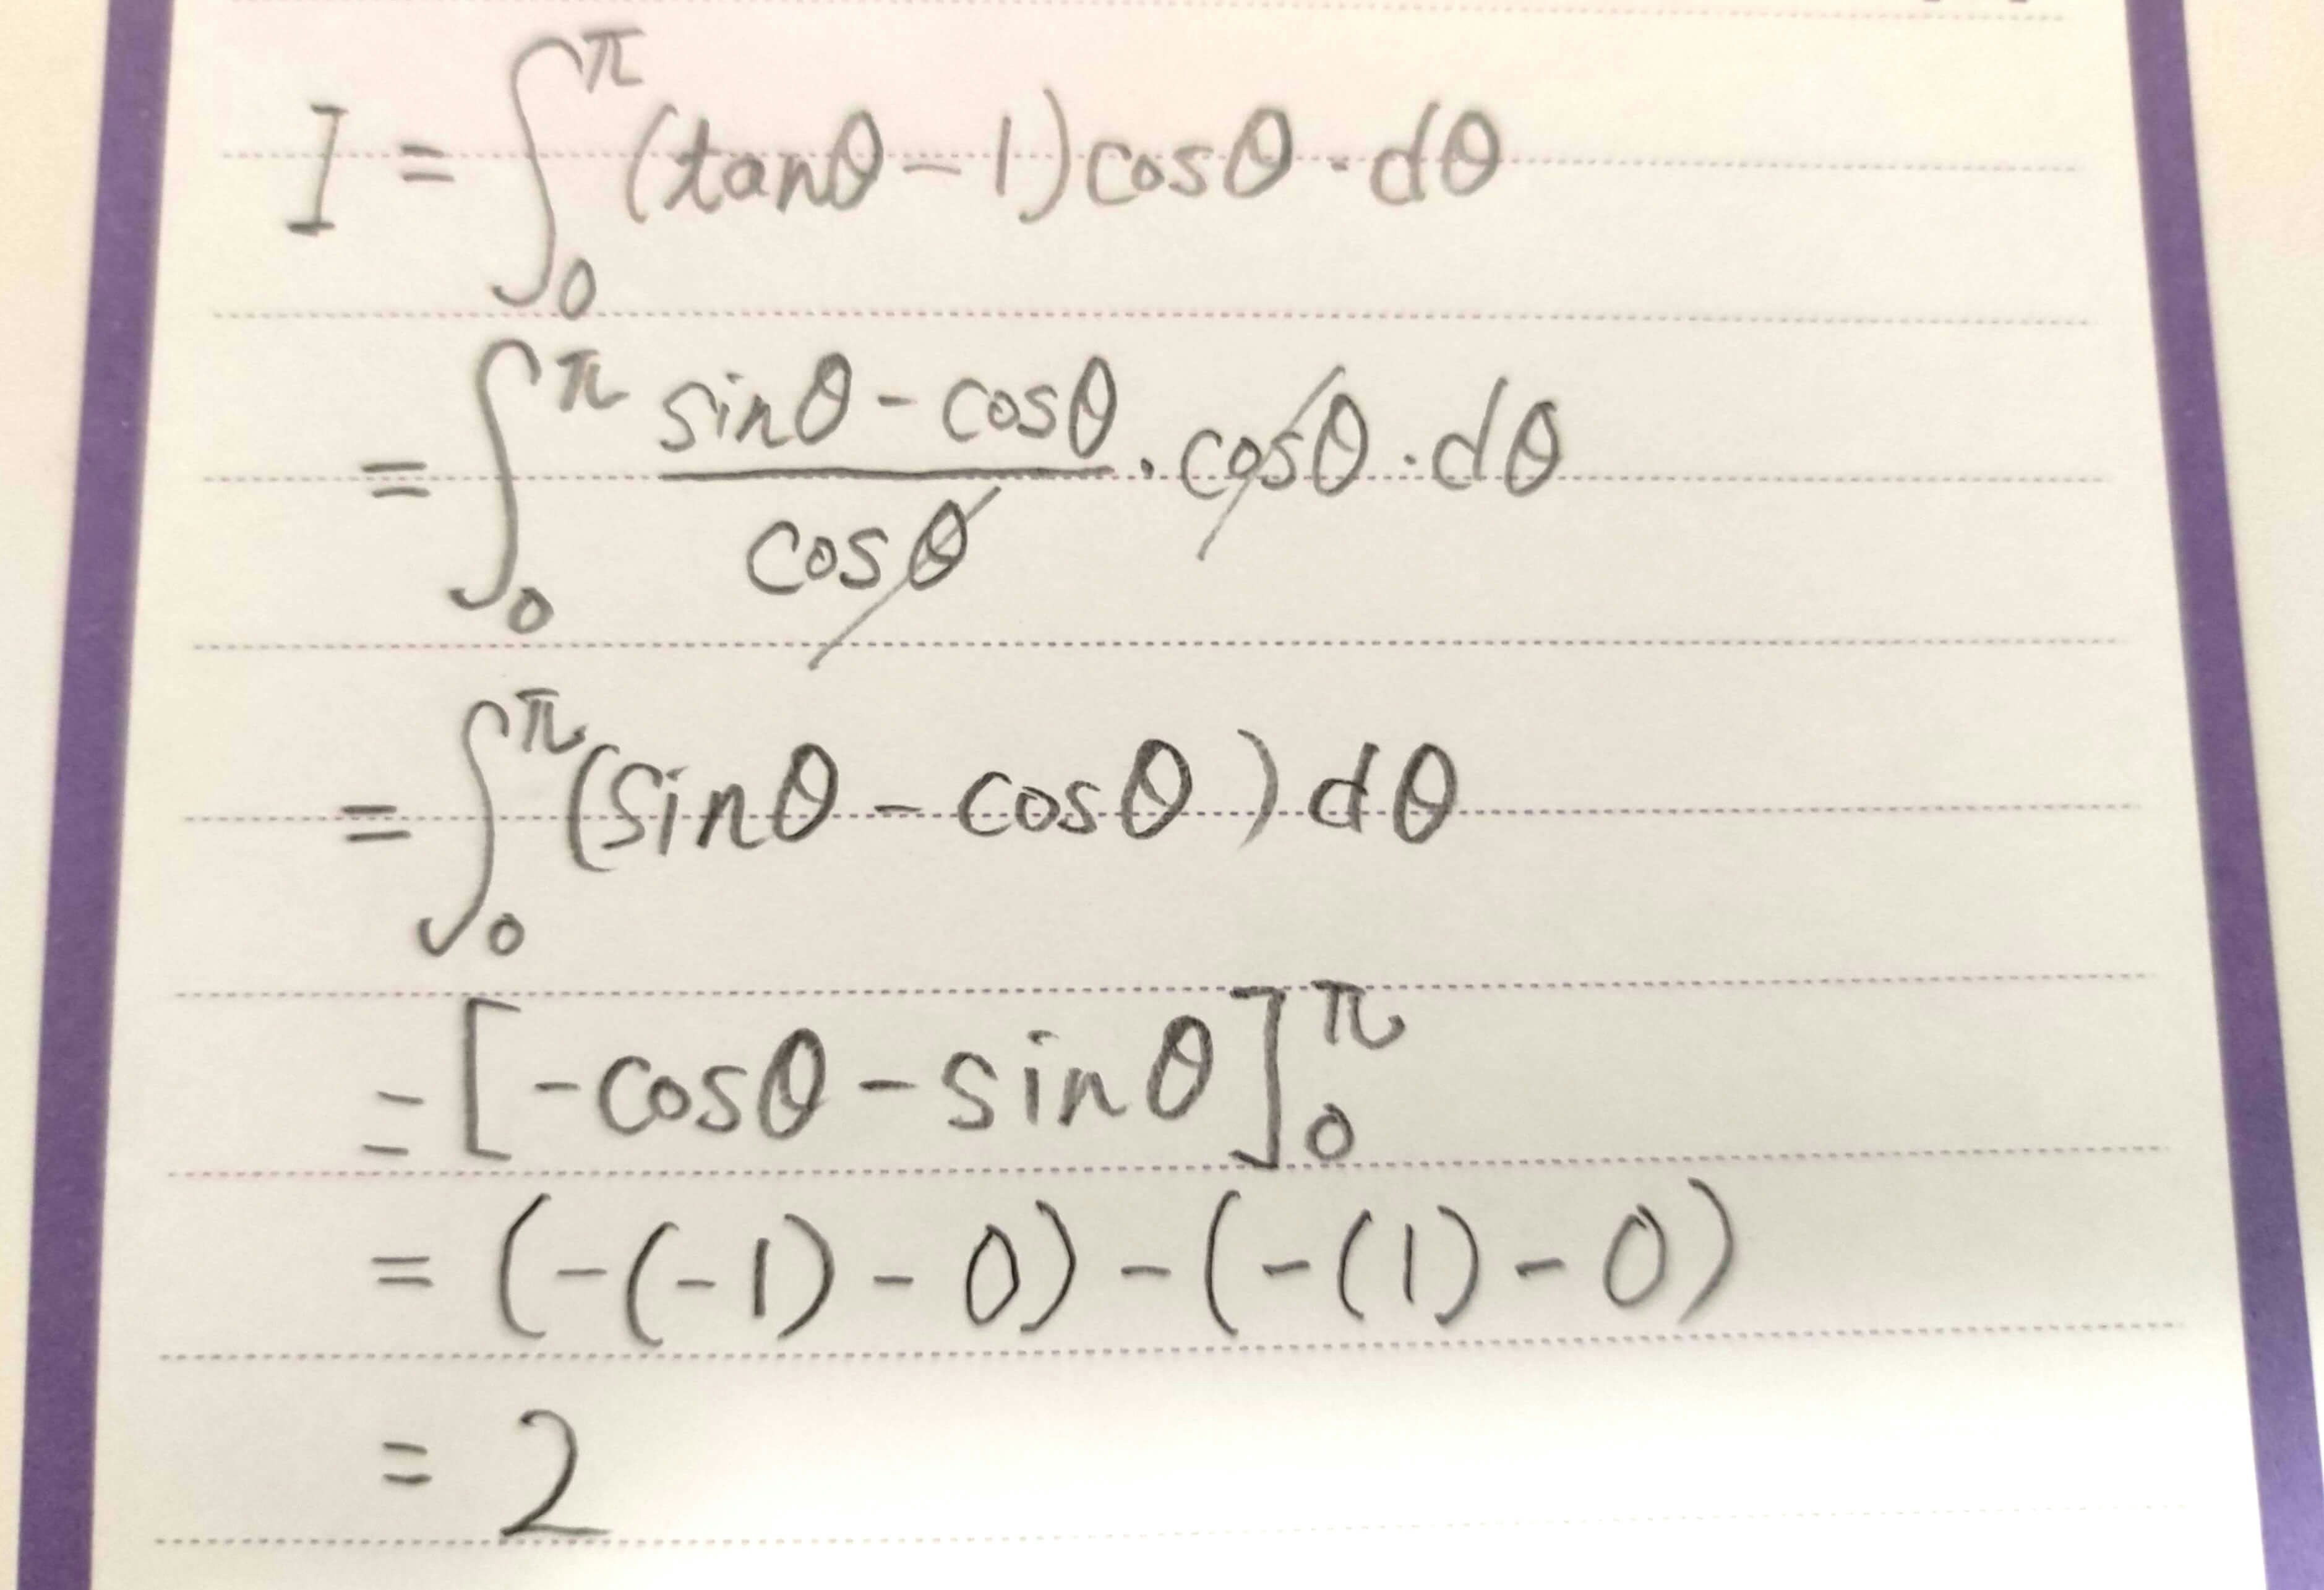 I = ∫₀^π (tanθ - 1) cosθ · dθ
= ∫₀^π (sinθ - cosθ)/cosθ · cosθ · dθ
= ∫₀^π (sinθ - cosθ) dθ
= [-cosθ - sinθ]₀^π
= (-(-1) - 0) - (-(1) - 0)
= 2